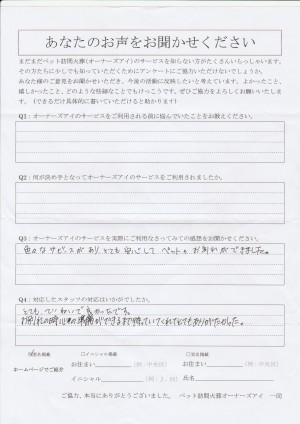 あなたのお声をお聞かせください
まだまだペット訪問火葬(オーナーズアイ)のサービスを知らない方がたくさんいらっしゃいます。
その方たちに少しでも知っていただくためにアンケートにご協力いただけないでしょうか。
あなた様のご意見をお聞かせいただき、今後の活動に反映したいと考えています。よかったこと、
嬉しかったこと、どのような些細なことでもけっこうです。ぜひご協力をよろしくお願いいたしま
す。(できるだけ具体的に書いていただけると助かります)
Q1：オーナーズアイのサービスをご利用される前に悩んでいたことをお教えください。
Q2：何が決め手となってオーナーズアイのサービスをご利用されましたか。
Q3：オーナーズアイのサービスを実際にご利用なさってみての感想をお聞かせください。
色々なサービスがあり、とても安心してペットとお別れができました。
Q4：対応したスタッフの対応はいかがでしたか。
とてもていねいで良かったです。
お別れの時も心の準備ができるまで待っていてくれてとてもありがたかった。
匿名掲載 □イニシャル掲載 □実名掲載
ホームページでご紹介 お住まい (例：中央区) お住まい (例：中央区)
イニシャル (例：J．H) 氏名
ご協力、本当にありがとうございました。 ペット訪問火葬オーナーズアイ 一同